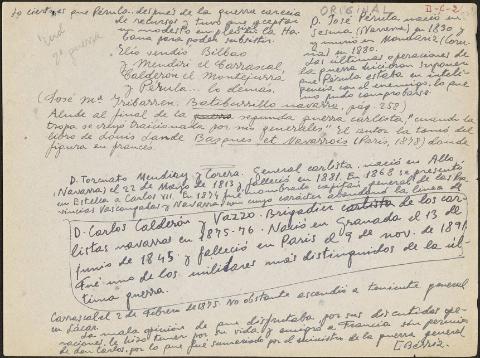 Lo cierto es que Pérula, después de la guerra carecía
de recursos y tuvo que aceptar
un modesto empleo en la Ha-
bana para poder subsistir.
ORIGINAL
II-C-2
Elío vendió Bilbao
y Mendiri el Carrascal,
Calderón el Montejurra,
y Pérula... lo demás.
D. José Pérula nació en
Sesma (Navarra) en 1830
y murió en Mondariz (Coru-
ña) en 1880.
Las últimas operaciones de
la guerra hicieron suponer
que Pérula estaba en inteli-
gencia con el enemigo, lo que
no pudo comprobarse.
(José Mª Iribarren. Batiburrillo navarro, pág. 258)
Alude al final de la segunda guerra carlista, "cuando la
tropa se creyó traicionada por sus generales". El autor la tomó del
libro de Louis Lande Basques et Navarrois (París, 1878) donde
figura en francés
D. Torcuato Mendiry y Corera. General carlista, nació en Allo
(Navarra) el 22 de Marzo de 1813 y falleció en 1881. En 1868 se presentó
en Estella a Carlos VII. En 1874 fue nombrado capitán general de las Pro-
vincias Vascongadas y Navarra, en cuyo carácter abandonó la línea de
D. Carlos Calderón y Vazzo. Brigadier carlista de los car-
listas navarros en 1875-76. Nació en Granada el 13 de
junio de 1845 y falleció en París el 9 de nov. de 1891.
Fué uno de los militares más distinguidos de la úl-
tima guerra.
Carrascal el 2 de Febrero de 1875. No obstante ascendió a teniente general
en Lácar.
La mala opinión de que disfrutaba por sus discutidas ope-
raciones, le hizo temer por su vida y emigró a Francia sin permiso
de don Carlos, por lo que fué sumariado por el ministro de la guerra general
[Bérriz.